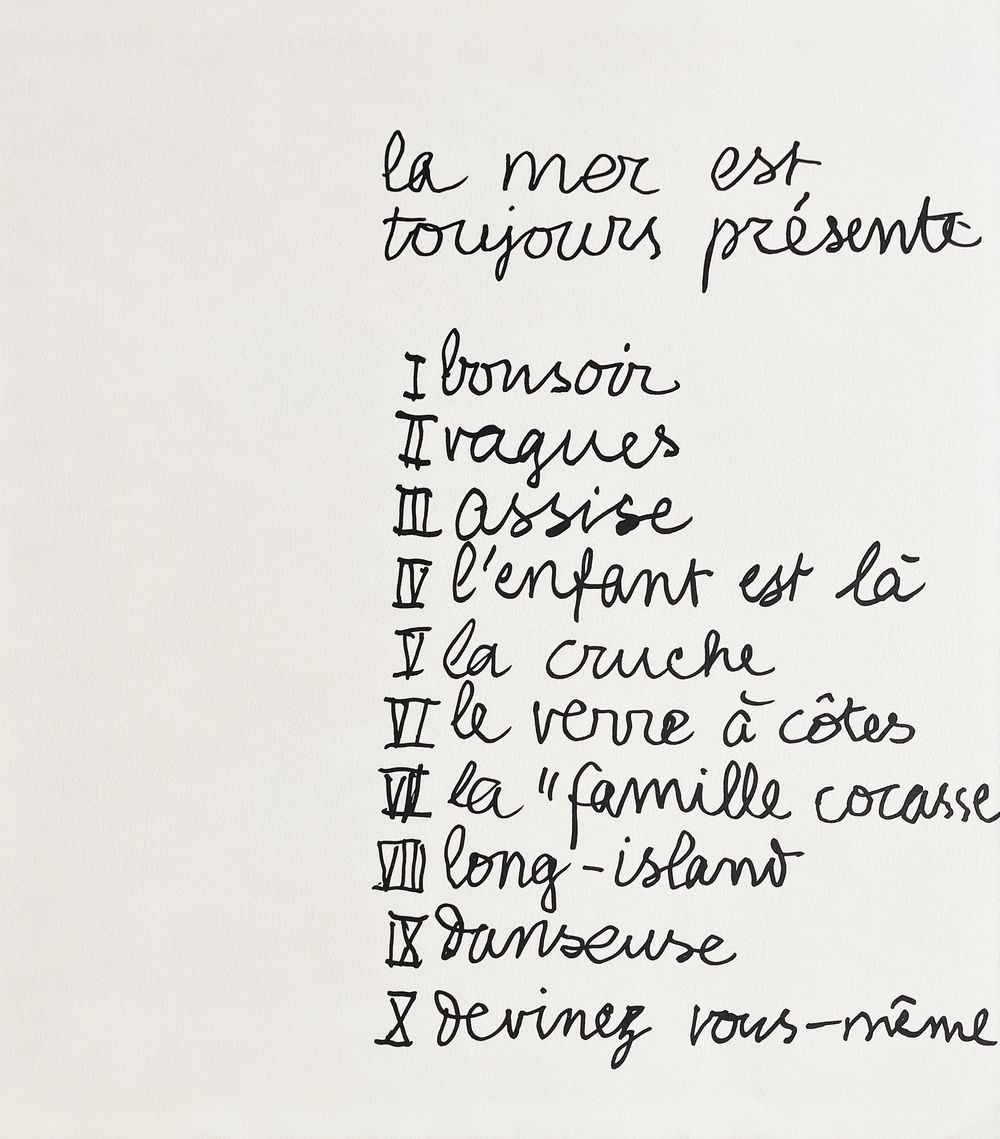 la mer est
toujours présente
I bonsoir
II vagues
III assise
IV l'enfant est là
V la cruche
VI le verre à côtes
VII la "famille cocasse
VIII long-island
IX danseuse
X devinez vous-même